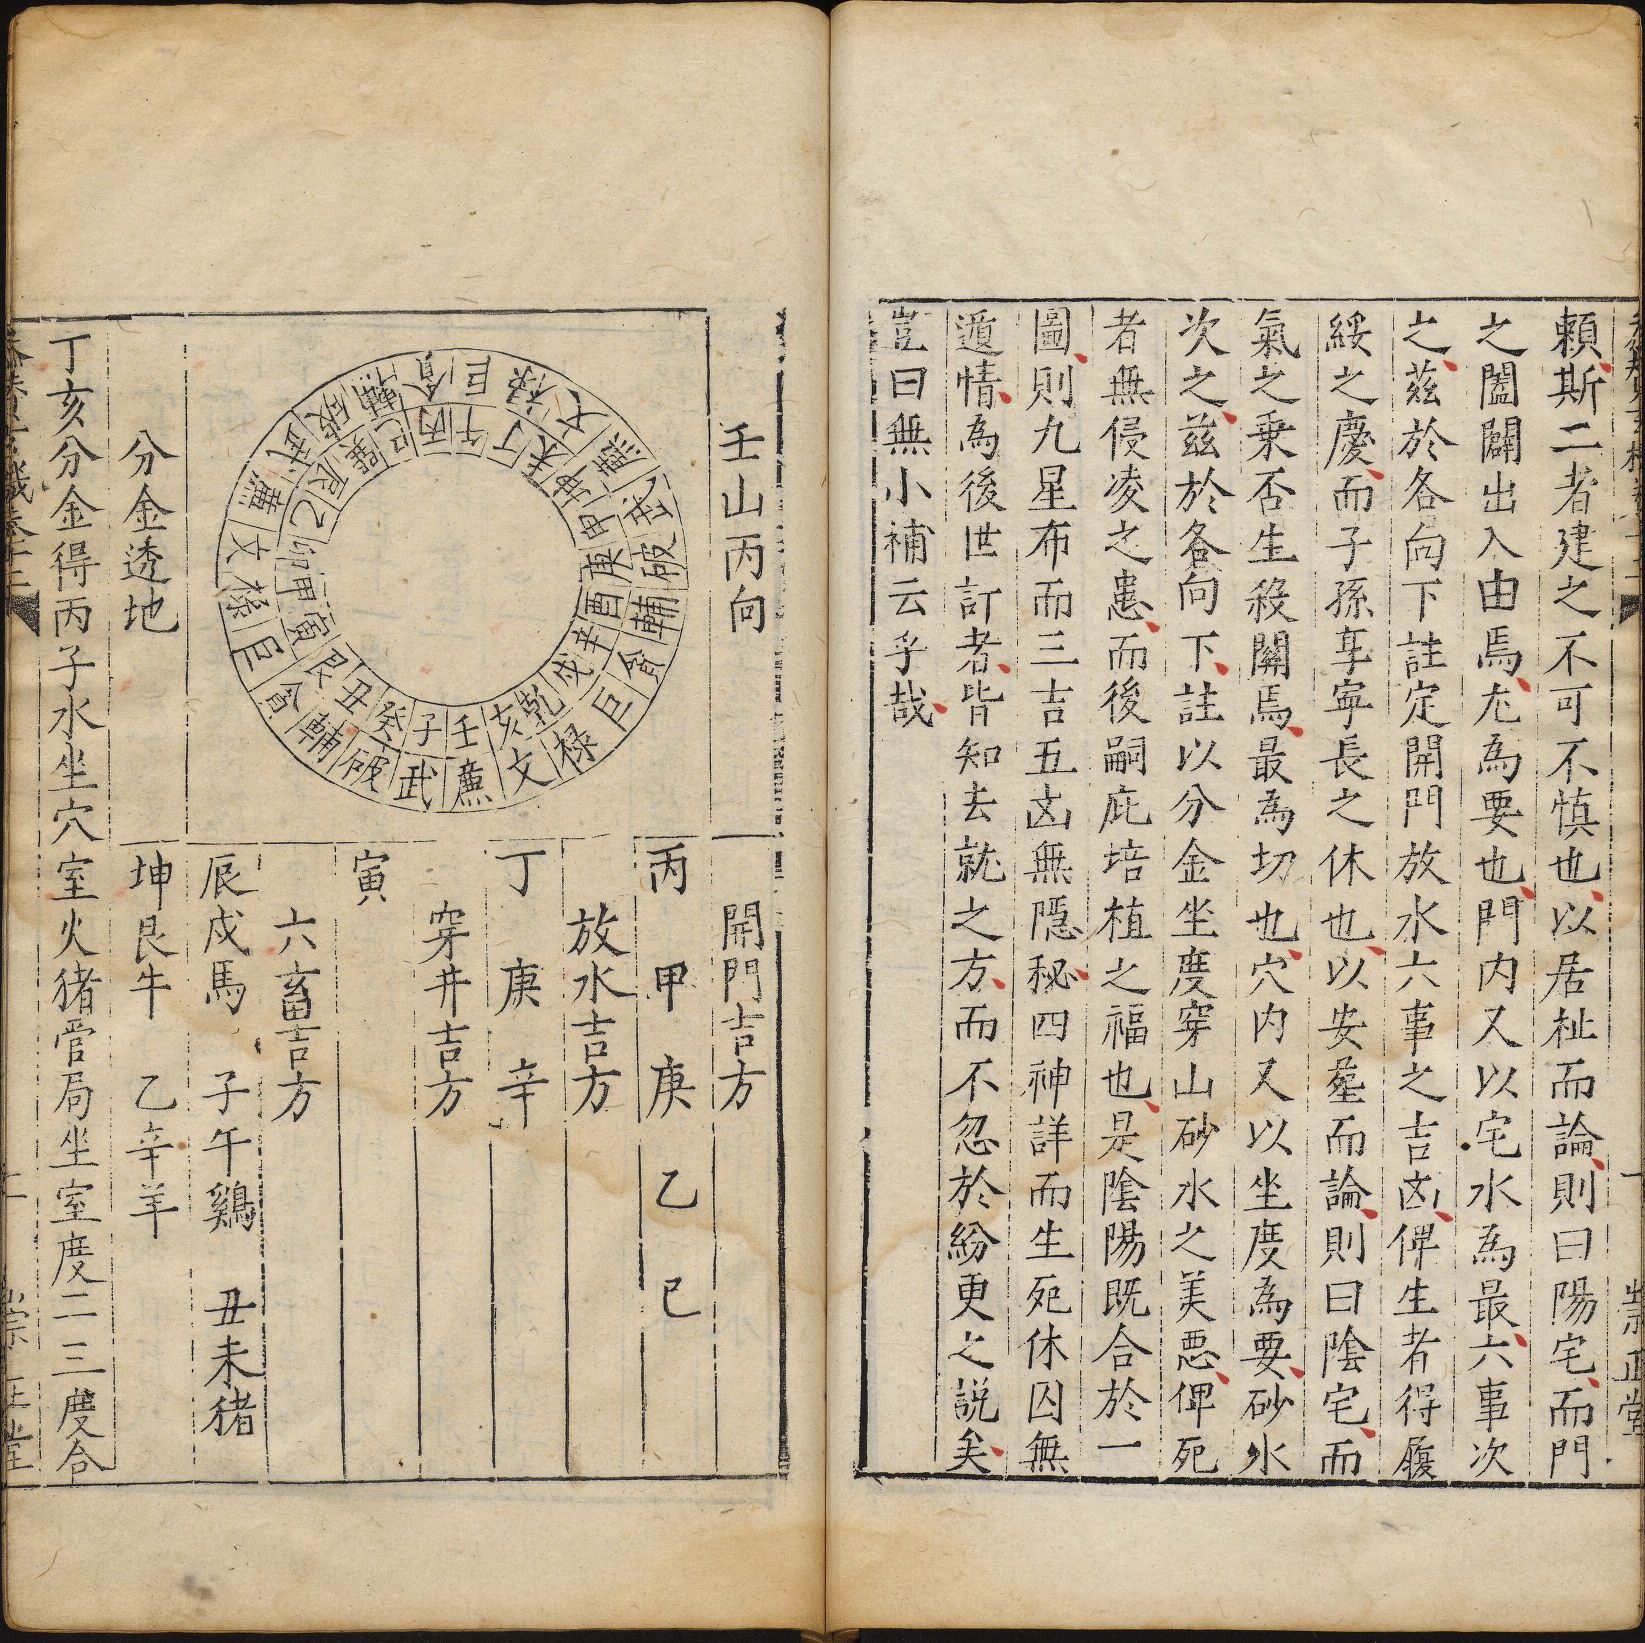 賴斯二者建之不可不慎也以居祉而論則曰陽宅而門
之闔闢出入由焉尤為要也門內又以宅水為最六事次
之茲於各向下註定開門放水六事之吉凶俾生者得履
綏之慶而子孫享寧長之休也以安塟而論則曰陰宅而
氣之乗否生殺關焉最為切也穴內又以坐度為要砂水
次之茲於各向下註以分金坐度穿山砂水之美惡俾死
者無侵凌之患而後嗣庇培植之福也是陰陽既合於一
圖則九星布而三吉五凶無隱秘四神詳而生死休囚無
遁情為後世訂者皆知去就之方而不忽於紛更之説矣
豈曰無小補云乎哉
壬山丙向
壬子癸丑艮寅甲卯乙辰巽巳丙午丁未坤申庚酉辛戌乾亥
廉武破輔貪巨祿文廉武破輔貪巨祿文廉武破輔貪巨祿文
開門吉方
丙 甲 庚 乙 巳
放水吉方
丁 庚 辛
穿井吉方
寅
六畜吉方
辰戌馬 子午鷄 丑未猪
坤艮牛 乙辛羊
分金透地
丁亥分金得丙子水坐穴室火猪管局坐室度二三度合